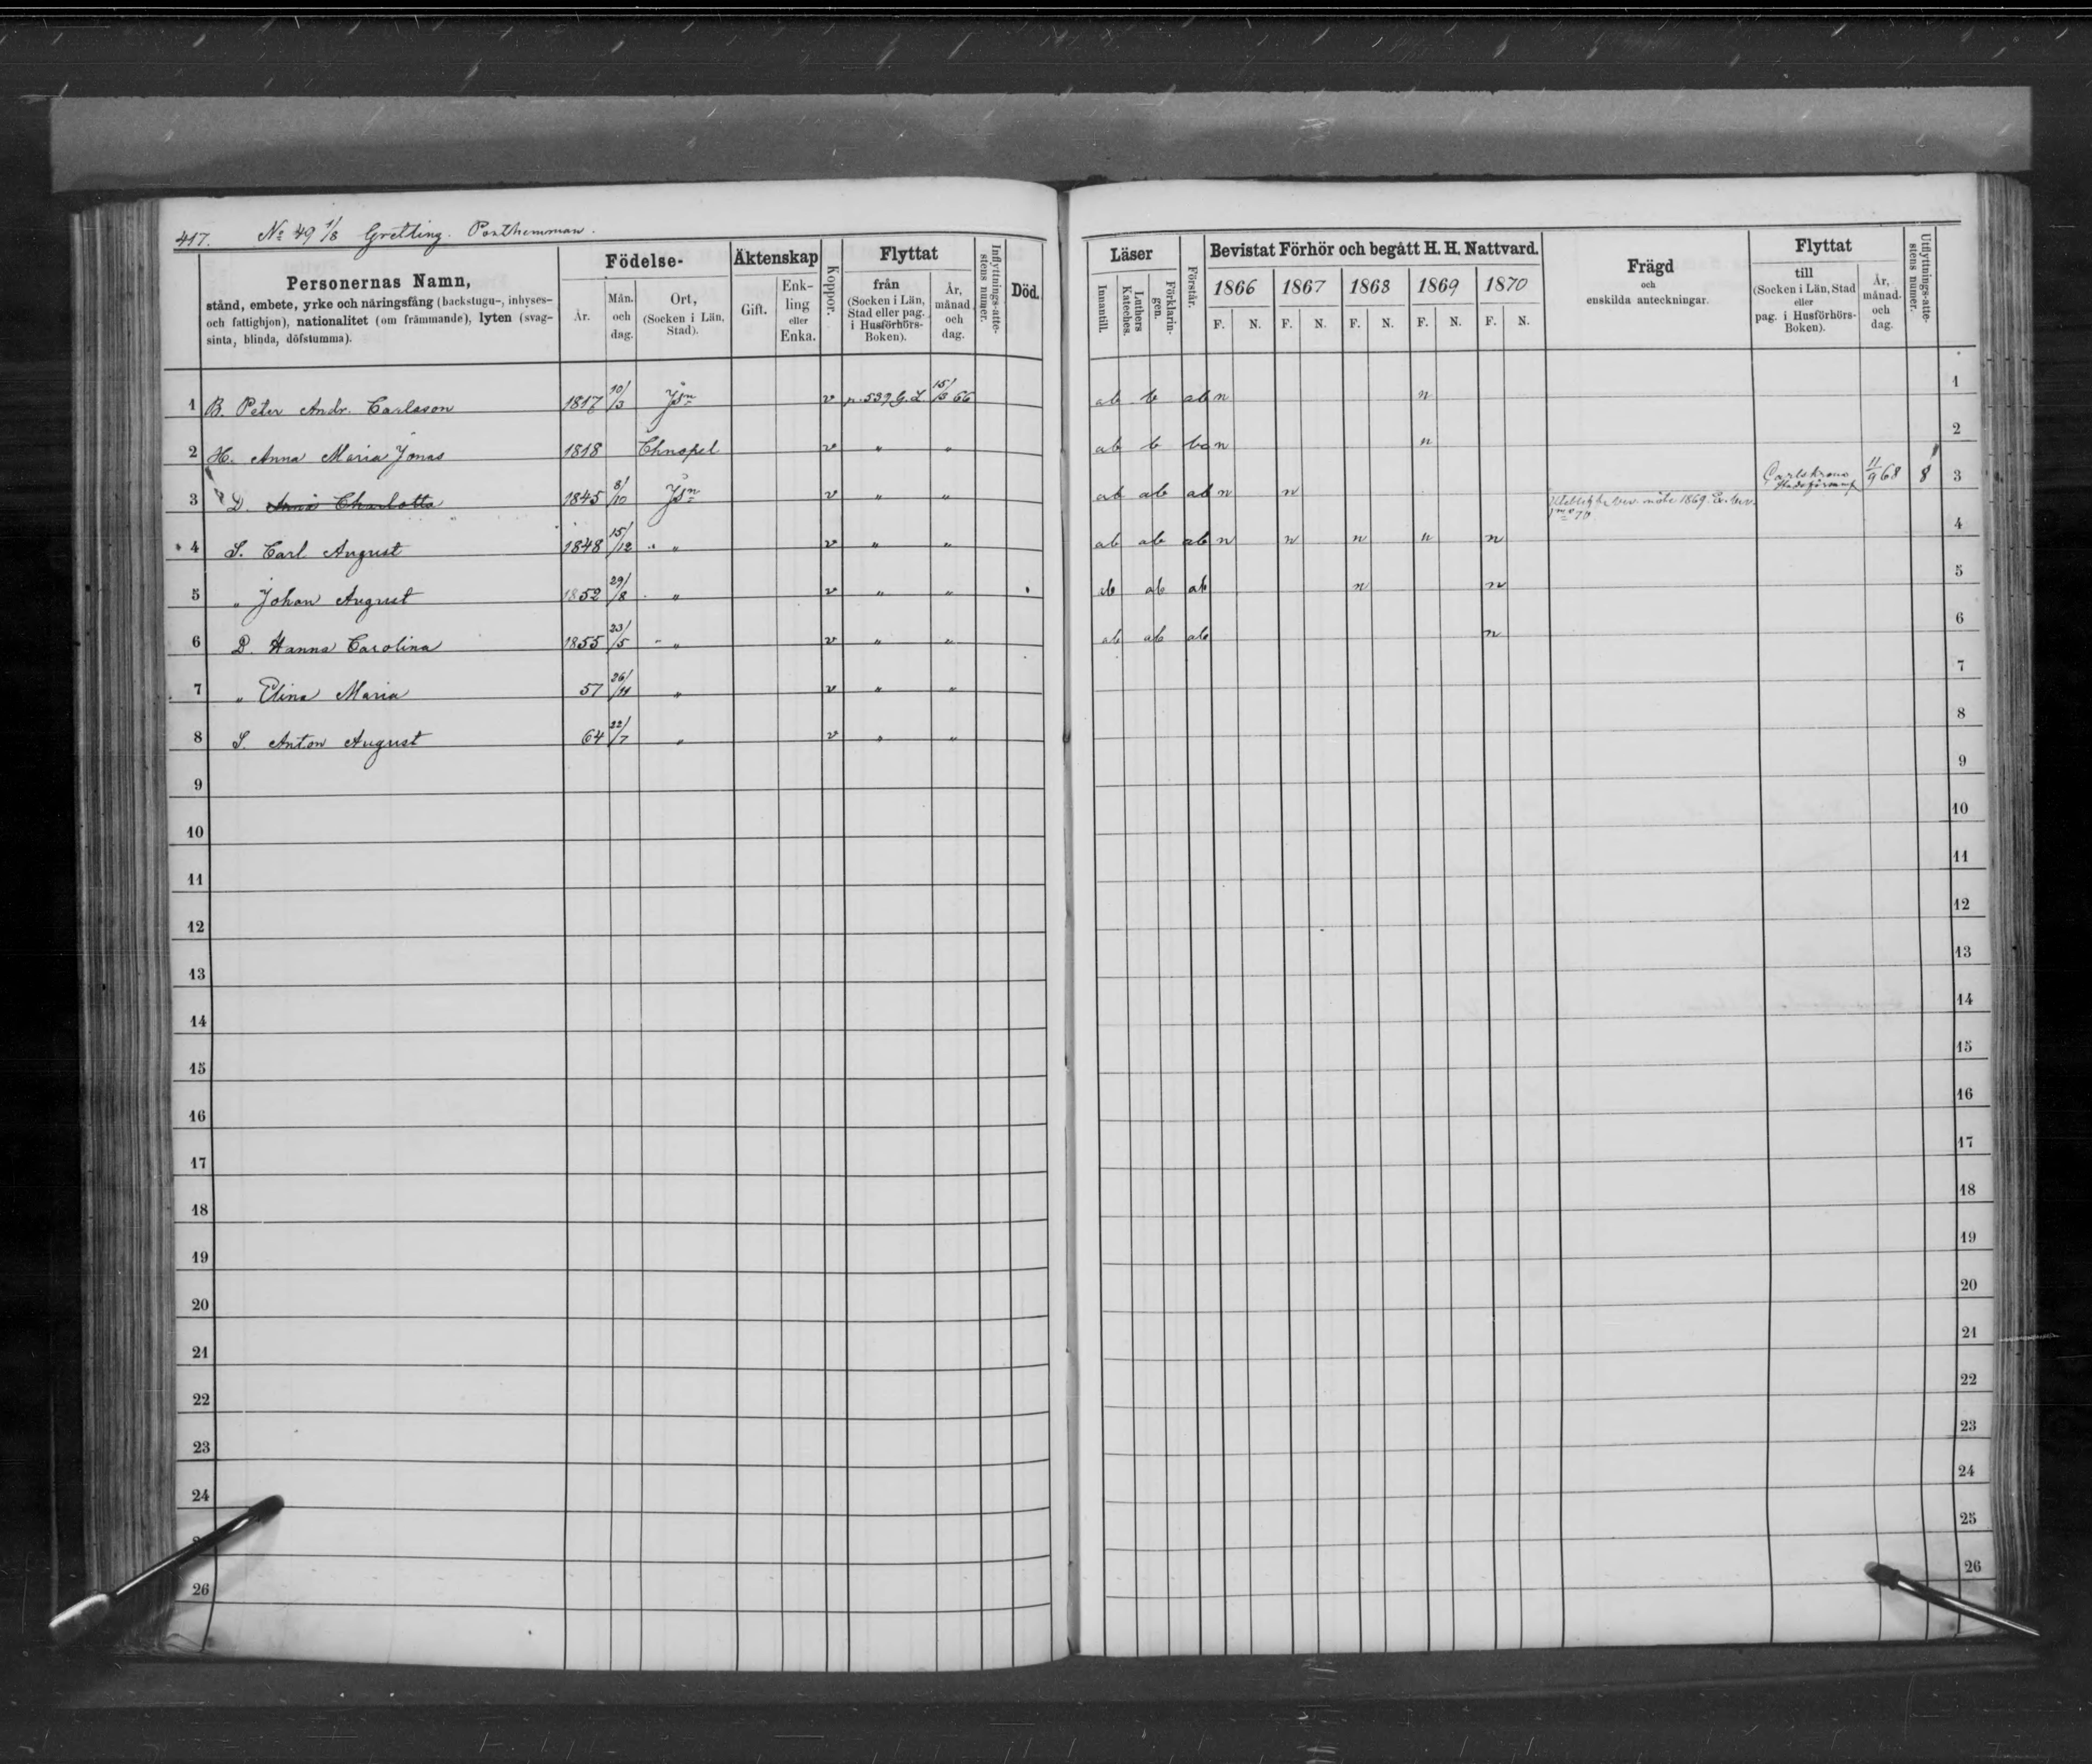 417. No 49 1/8 Gretting. Posthemman.
Personernas Namn,
stånd, embete, yrke och näringsfång (backstugu-, inhyses-
och fattighjon), nationalitet (om främmande), lyten (svag-
sinta, blinda, döfstumma).
Födelse-
År.
Mån. och dag.
Ort, (Socken i Län, Stad).
Äktenskap
Gift.
Enk- ling eller Enka.
Koppor.
Flyttat
från (Socken i Län, Stad eller pag. i Husförhörs- Boken).
År, månad och dag.
Inflyttnings-atte- stens numer.
Död.
1 B. Peter Andr. Carlsson 1817 10/3 Jsn v p. 539 G. L. 15/3 66
2 H. Anna Maria Jonas 1818 Chnopel v " "
3 D. Anna Charlotta 1845 8/10 Jsn v " "
4 S. Carl August 1848 15/12 " " v " "
5 " Johan August 1852 29/8 " v " "
6 D. Hanna Carolina 1855 23/5 " " v " "
7 " Elina Maria 57 26/11 " v " "
8 S. Anton August 64 22/7 " v " "
9
10
11
12
13
14
15
16
17
18
19
20
21
22
23
24
26
Läser
Innantill.
Luthers Kateches.
Förklarin- gen.
Förstår.
Bevistat Förhör och begått H. H. Nattvard.
1866 1867 1868 1869 1870
F. N. F. N. F. N. F. N. F. N.
Frägd
och
enskilda anteckningar.
Flyttat
till (Socken i Län, Stad eller pag. i Husförhörs- Boken).
År, månad. och dag.
Utflyttnings-atte- stens numer.
ab b ab n n 1
ab b ba n n 2
ab ab ab n n Carlskrona 11/9 68 8 3
möte 1869
70
ab ab ab n n n n n 4
ab ab ab n n 5
ab ab ab n 6
7
8
9
10
11
12
13
14
15
16
17
18
19
20
21
22
23
24
25
26